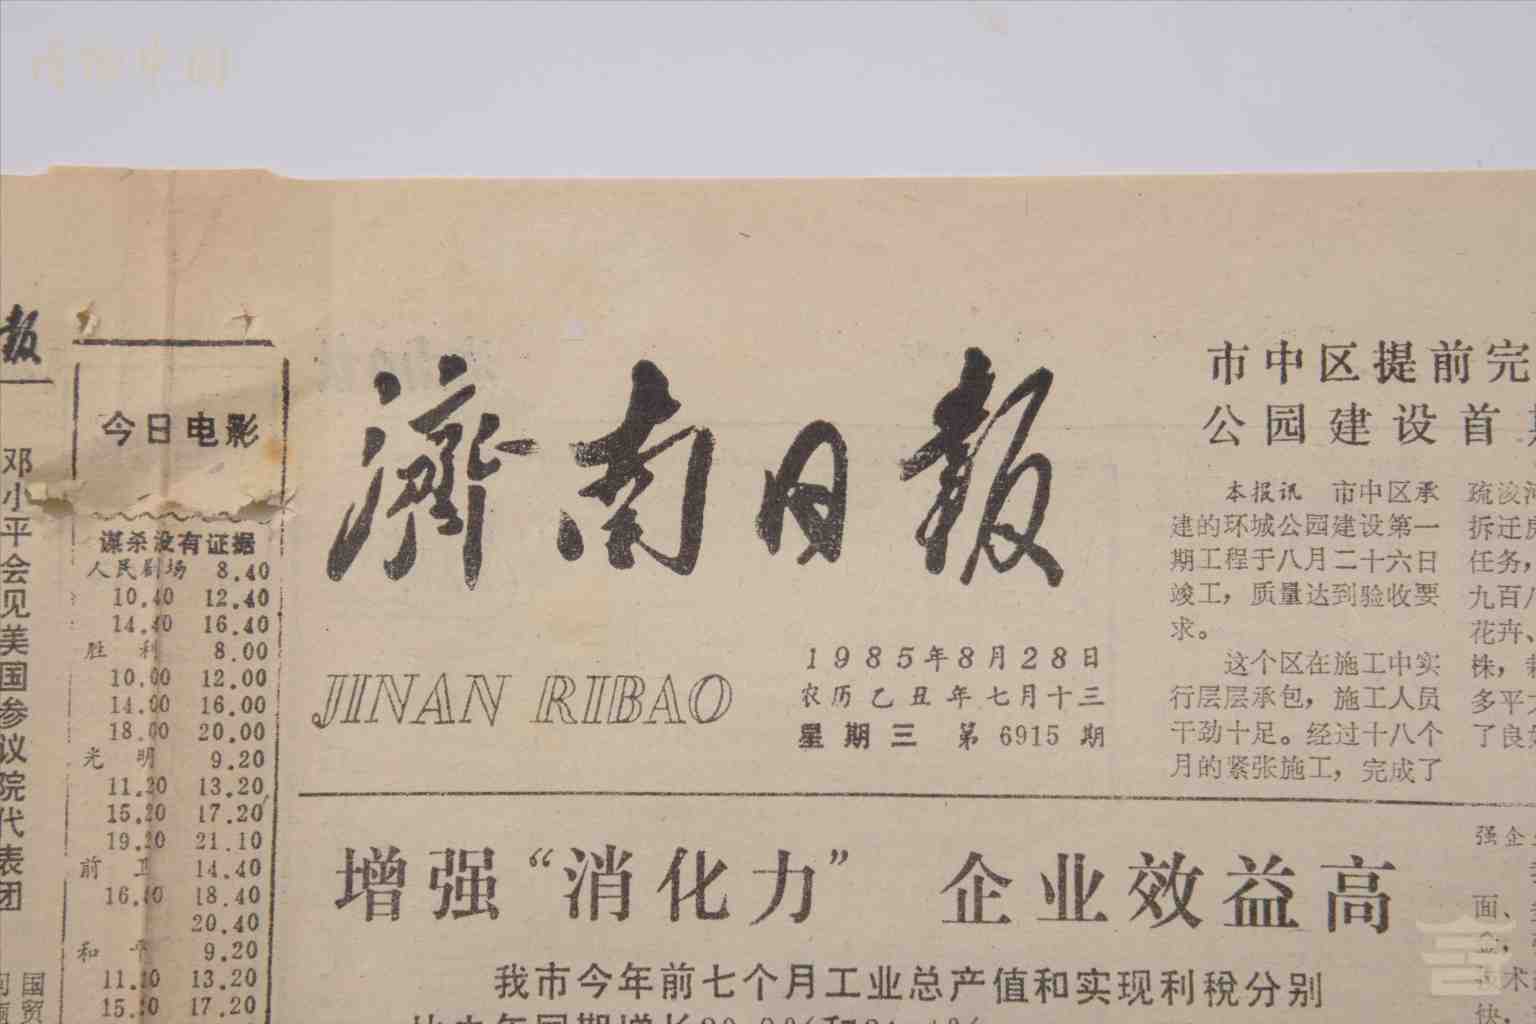 报
邓小平会见美国参议院代表团
国贸
今日电影
谋杀没有证据
人民剧场 8.40
10.40 12.40
14.40 16.40
胜利 8.00
10.00 12.00
14.00 16.00
18.00 20.00
光明 9.20
11.20 13.20
15.20 17.20
19.20 21.10
前卫 14.40
16.40 18.40
20.40
和平 9.20
11.20 13.20
15.20 17.20
濟南日报
JINAN RIBAO
1985年8月28日
农历乙丑年七月十三
星期三 第6915期
市中区提前完
公园建设首
本报讯 市中区承
建的环城公园建设第一
期工程于八月二十六日
竣工，质量达到验收要
求。
这个区在施工中实
行层层承包，施工人员
干劲十足。经过十八个
月的紧张施工，完成了
疏浚
拆迁
任务，
九百八
花卉、
株，
多平
了良
增强“消化力” 企业效益高
我市今年前七个月工业总产值和实现利税分别
强企
面、
技术
快，